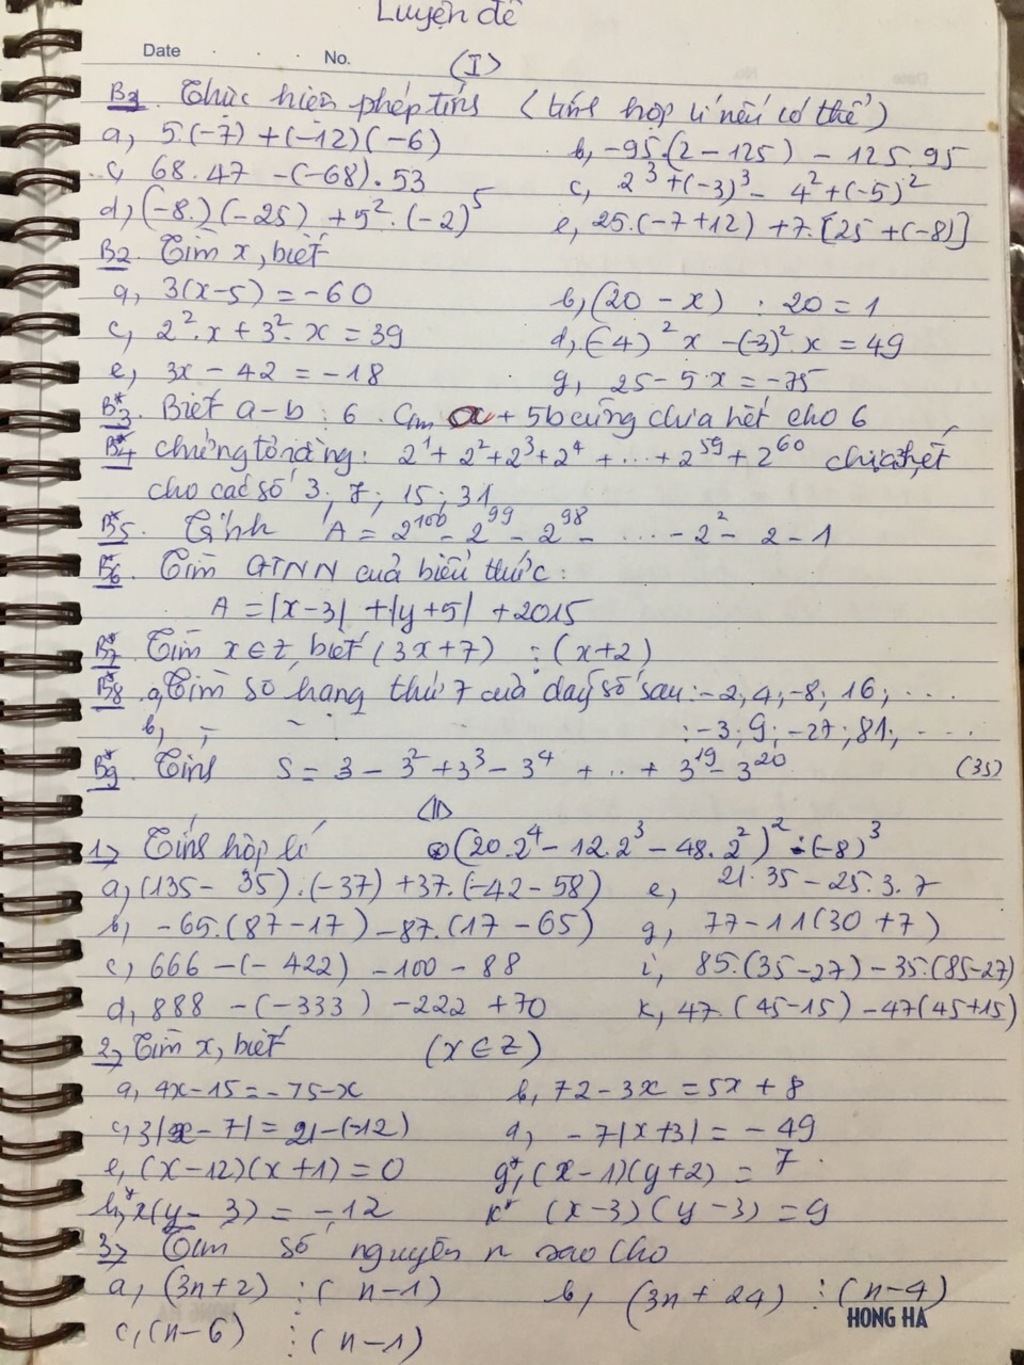 Luyện đề
Date . . . No.
(I)
B1. Thực hiện phép tính (tính hợp lí nếu có thể)
a, 5.(-7) + (-12)(-6) b, -95.(2 - 125) - 125.95
c, 68.47 - (-68).53 c, 2³ + (-3)³ - 4² + (-5)²
d, (-8.)(-25) + 5².(-2)⁵ e, 25.(-7+12) + 7.[25 + (-8)]
B2. Tìm x, biết
a, 3(x-5) = -60 b, (20 - x) : 20 = 1
c, 2².x + 3².x = 39 d, (-4)²x - (-3)².x = 49
e, 3x - 42 = -18 g, 25 - 5.x = -75
B*3. Biết a-b ⋮ 6. Cm a + 5b cũng chia hết cho 6
B*4 chứng tỏ rằng: 2¹ + 2² + 2³ + 2⁴ + ... + 2⁵⁹ + 2⁶⁰ chia hết
cho các số 3; 7; 15; 31
B*5. Tính A = 2¹⁰⁰ - 2⁹⁹ - 2⁹⁸ - ... - 2² - 2 - 1
B*6. Tìm GTNN của biểu thức:
A = |x-3| + |y+5| + 2015
B*7 Tìm x ∈ Z, biết (3x+7) ⋮ (x+2)
B*8 a, Tìm số hạng thứ 7 của dãy số sau: -2; 4; -8; 16; ...
b, : -3; 9; -27; 81; ...
B*9 Tính S = 3 - 3² + 3³ - 3⁴ + ... + 3¹⁹ - 3²⁰ (35)
(II)
1, Tính hợp lí (20.2⁴ - 12.2³ - 48.2²)² : (-8)³
a, (135 - 35).(-37) + 37.(-42 - 58) e, 21.35 - 25.3.7
b, -65.(87-17) - 87.(17 - 65) g, 77 - 11(30 + 7)
c, 666 - (-422) - 100 - 88 i, 85.(35-27) - 35.(85-27)
d, 888 - (-333) - 222 + 70 k, 47.(45-15) - 47(45+15)
2, Tìm x, biết (x ∈ Z)
a, 4x - 15 = -75 - x b, 72 - 3x = 5x + 8
c, 3|x - 7| = 21 - (-12) d, -7|x+3| = -49
e, (x-12)(x+1) = 0 g*, (x-1)(y+2) = 7.
h,* x(y - 3) = -12 k* (x-3)(y-3) = 9
3, Tìm số nguyên n sao cho
a, (3n+2) ⋮ (n-1) b, (3n + 24) ⋮ (n-4)
HONG HA
c, (n-6) ⋮ (n-1)